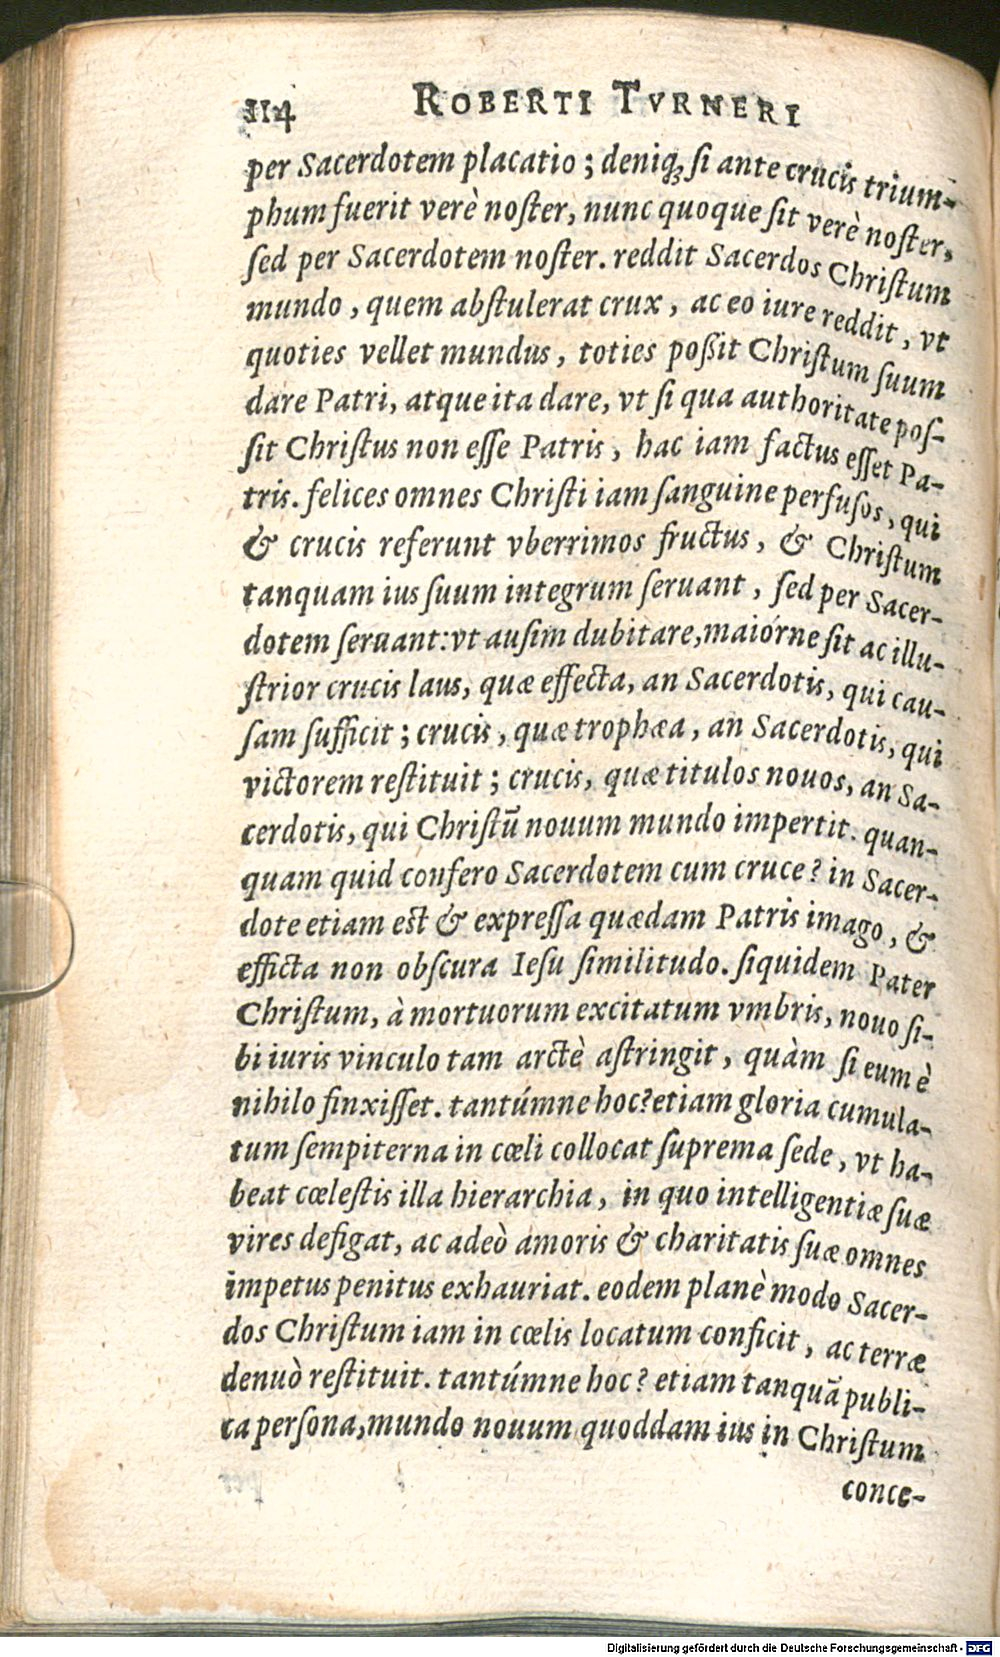 114 ROBERTI TVRNERI
per Sacerdotem placatio; deniq; si ante crucis trium-
phum fuerit verè noster, nunc quoque sit verè noster,
sed per Sacerdotem noster. reddit Sacerdos Christum
mundo, quem abstulerat crux, ac eo iure reddit, vt
quoties vellet mundus, toties poßit Christum suum
dare Patri, atque ita dare, vt si qua authoritate pos-
sit Christus non esse Patris, hac iam factus esset Pa-
tris. felices omnes Christi iam sanguine perfusos, qui
& crucis referunt vberrimos fructus, & Christum
tanquam ius suum integrum seruant, sed per Sacer-
dotem seruant: vt ausim dubitare, maiórne sit ac illu-
strior crucis laus, quæ effecta, an Sacerdotis, qui cau-
sam sufficit; crucis, quæ trophæa, an Sacerdotis, qui
victorem restituit; crucis, quæ titulos nouos, an Sa-
cerdotis, qui Christū nouum mundo impertit. quan-
quam quid confero Sacerdotem cum cruce? in Sacer-
dote etiam est & expressa quædam Patris imago, &
efficta non obscura Iesu similitudo. siquidem Pater
Christum, à mortuorum excitatum vmbris, nouo si-
bi iuris vinculo tam arctè astringit, quàm si eum è
nihilo finxisset. tantúmne hoc? etiam gloria cumula-
tum sempiterna in cœli collocat suprema sede, vt ha-
beat cœlestis illa hierarchia, in quo intelligentiæ suæ
vires defigat, ac adeò amoris & charitatis suæ omnes
impetus penitus exhauriat. eodem planè modo Sacer-
dos Christum iam in cœlis locatum conficit, ac terræ
denuò restituit. tantúmne hoc? etiam tanquā publi-
ca persona, mundo nouum quoddam ius in Christum
conce-
Digitalisierung gefördert durch die Deutsche Forschungsgemeinschaft - DFG